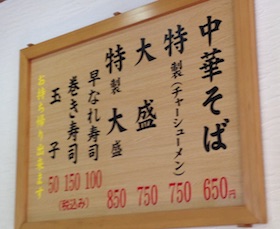 中華そば 650円
特製(チャーシューメン) 750
大盛 750
特製大盛 850
早なれ寿司 100
巻き寿司 150
玉子 50
(税込み)
お持ち帰り出来ます